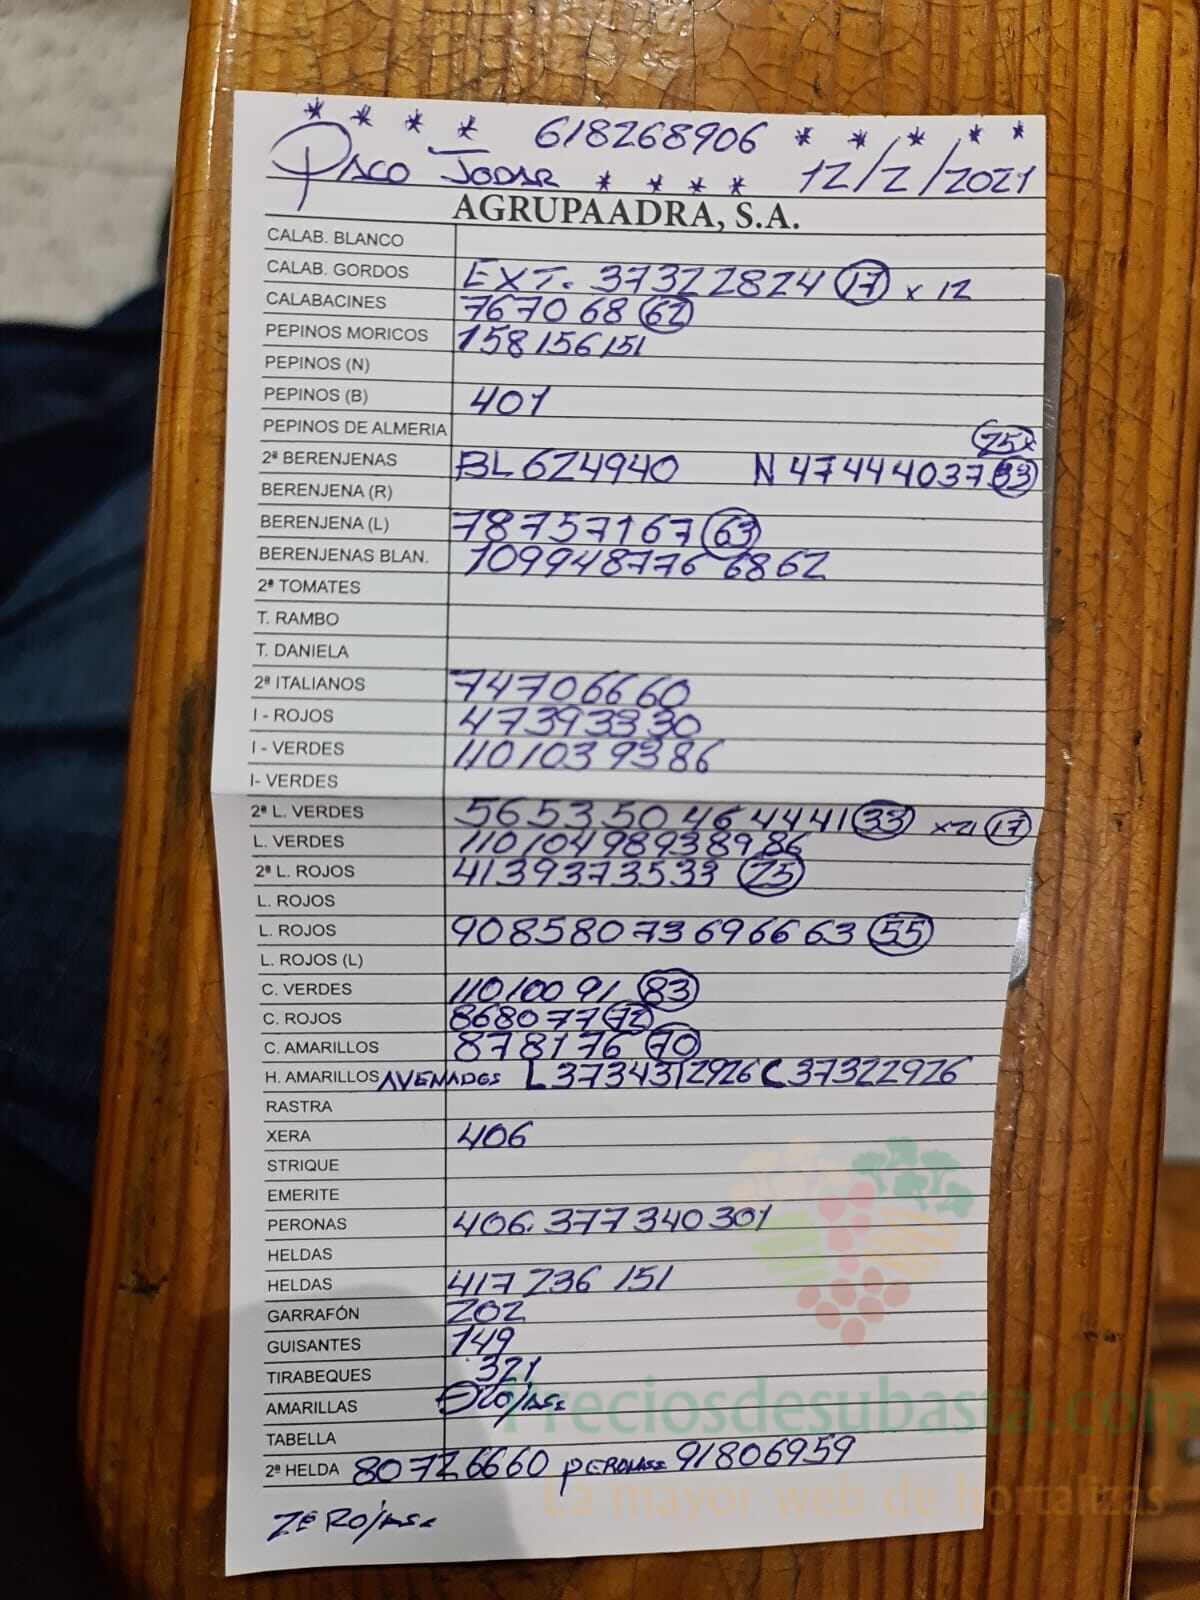 * * * * 618268906 * * * * *
PACO JODAR * * * * 12/2/2021
AGRUPAADRA, S.A.
CALAB. BLANCO
CALAB. GORDOS EXT. 37322824 17 x 12
CALABACINES 767068 62
PEPINOS MORICOS 158 156 151
PEPINOS (N)
PEPINOS (B) 401
PEPINOS DE ALMERIA 25x
2ª BERENJENAS BL 624940 N 4744403733
BERENJENA (R)
BERENJENA (L) 78757167 63
BERENJENAS BLAN. 109948776 6862
2ª TOMATES
T. RAMBO
T. DANIELA
2ª ITALIANOS 74706660
I - ROJOS 47393330
I - VERDES 110103 9386
I- VERDES
2ª L. VERDES 565350 464441 33 x21 17
L. VERDES 110104989389 86
2ª L. ROJOS 4139373533 25
L. ROJOS
L. ROJOS 908580 73 696663 55
L. ROJOS (L)
C. VERDES 110100 91 83
C. ROJOS 868077 72
C. AMARILLOS 878176 70
H. AMARILLOS AVENADOS L 3734312926 C 37322926
RASTRA
XERA 406
STRIQUE
EMERITE
PERONAS 406. 377 340 301
HELDAS
HELDAS 417 236 151
GARRAFÓN 202
GUISANTES 149
TIRABEQUES 321
AMARILLAS
TABELLA
2ª HELDA 80726660 PERONAS 91806959
Preciosdesubasta.com
La mayor web de hortalizas